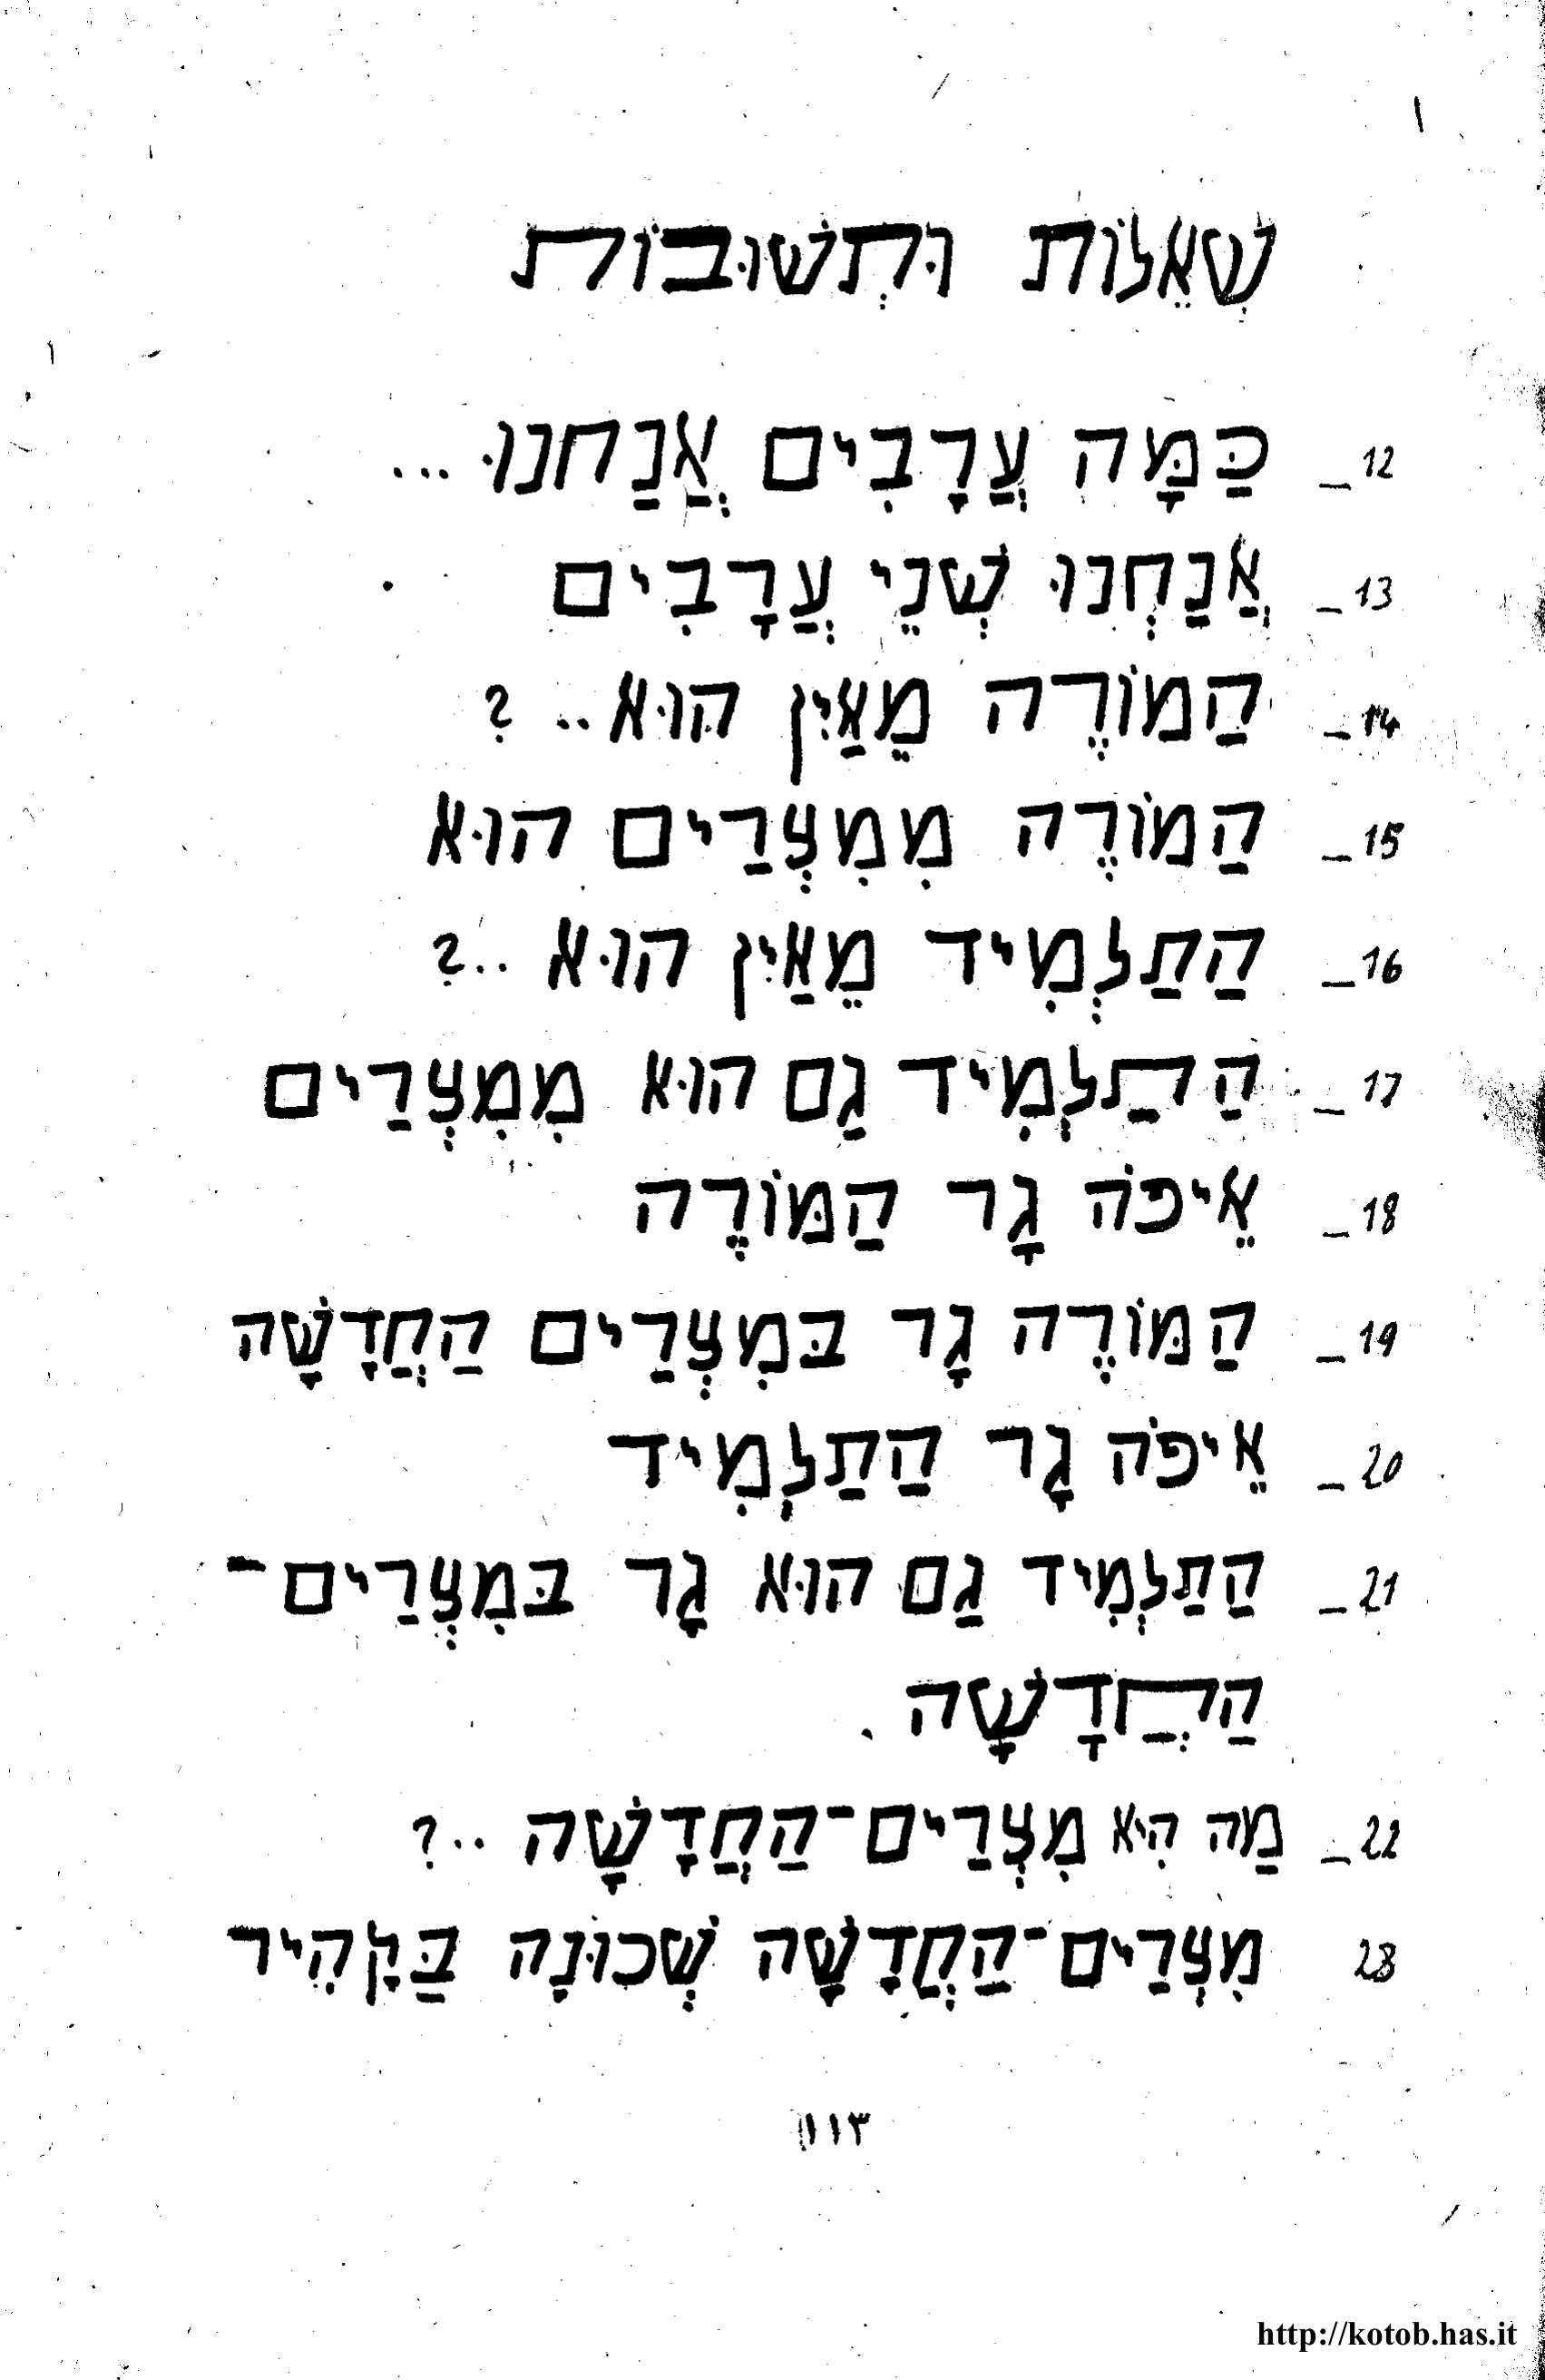 שְׁאֵלוֹת וּתְשׁוּבוֹת
12_ כַּמָּה עֲרָבִים אֲנַחנוּ ...
13_ אֲנַחְנוּ שְׁנֵי עֲרָבִים
14_ הַמוֹרֶה מֵאַיִן הוּא .. ?
15_ הַמוֹרֶה מִמִצְרַים הוּא
16_ הַתַלְמִיד מֵאַיִן הוּא ..?
17_ הַתַלְמִיד גַם הוּא מִמִצְרַים
18_ אֵיפֹה גָר הַמּוֹרֶה
19_ הַמּוֹרֶה גָר בּמִצְרַים הַחֲדָשָׁה
20_ אֵיפֹה גָר הַתַלְמִיד
21_ הַתַלְמִיד גַם הוּא גָר בּמִצְרַים־
הַחֲדָשָׁה .
22_ מַה הִיא מִצְרַים־הַחֲדָשָׁה ..?
23 מִצְרַים־הַחֲדָשָׁה שְׁכוּנָה בַּקָהִיר
١١٣
http://kotob.has.it